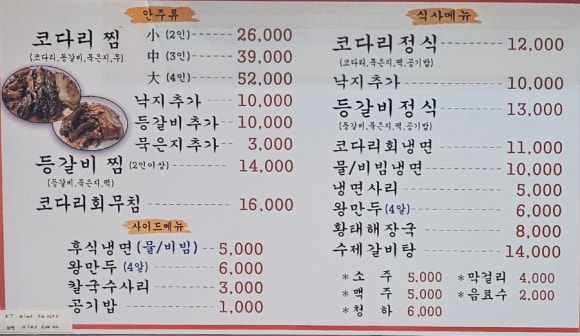 안주류
코다리 찜 小 (2인) 26,000
(코다리,등갈비,묵은지,무) 中 (3인) 39,000
大 (4인) 52,000
낙지추가 10,000
등갈비추가 10,000
묵은지추가 3,000
등갈비 찜 (2인이상) 14,000
(등갈비,묵은지,떡)
코다리회무침 16,000
사이드메뉴
후식냉면 (물/비빔) 5,000
왕만두 (4알) 6,000
칼국수사리 3,000
공기밥 1,000
식사메뉴
코다리정식 12,000
(코다리,묵은지,떡,공기밥)
낙지추가 10,000
등갈비정식 13,000
(등갈비,묵은지,떡,공기밥)
코다리회냉면 11,000
물/비빔냉면 10,000
냉면사리 5,000
왕만두 (4알) 6,000
황태해장국 8,000
수제갈비탕 14,000
*소 주 5,000 *막걸리 4,000
*맥 주 5,000 *음료수 2,000
*청 하 6,000